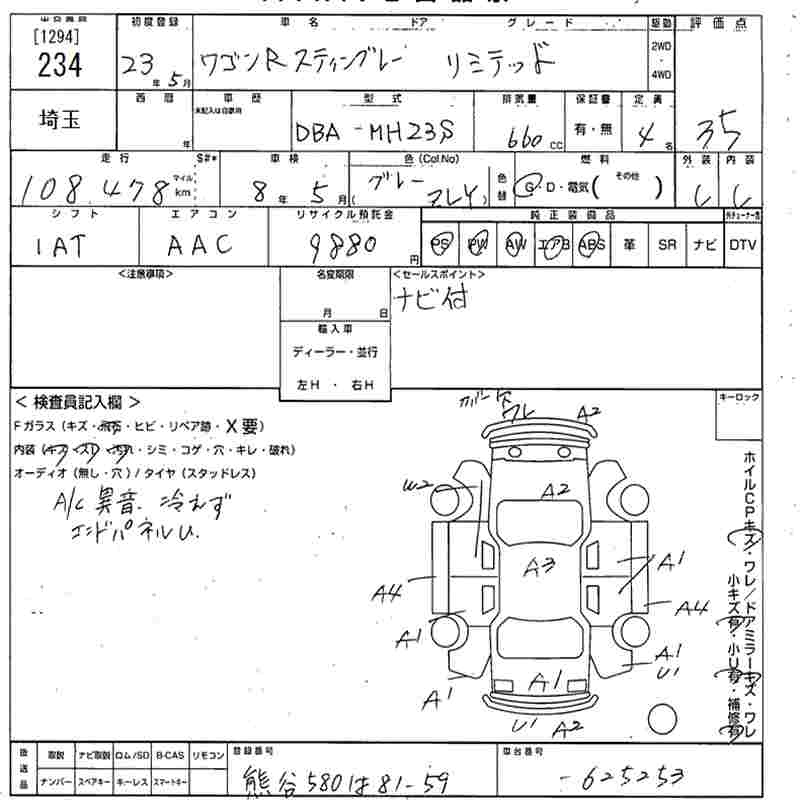 初度登録 車名 ドア グレード 駆動 評価点
[1294]
234
23年 5月 ワゴンR スティングレー リミテッド 2WD・4WD 35
埼玉
西暦 車歴 型式 排気量 保証書 定員
未記入は自家用
年 DBA - MH23S 660 CC 有・無 4名
走行 S#* 車検 色(Col.No) 燃料 外装 内装
108,478 マイル km 8年 5月 グレー ( 色替 G・D・電気( その他 )
シフト エアコン リサイクル預託金 純正装備品
1AT AAC 9880円 PS PW AW エアB ABS 革 SR ナビ DTV
<注意事項> 名変期限 <セールスポイント>
月 日 ナビ付
輸入車
ディーラー・並行
左H ・ 右H
< 検査員記入欄 > キーロック
Fガラス(キズ・飛石・ヒビ・リペア跡・X要)
内装(キズ・スレ・汚れ・シミ・コゲ・穴・キレ・破れ)
オーディオ(無し・穴)/タイヤ(スタッドレス)
A/C 異音、冷えず
エンドパネルU.
カバー欠
ワレ A2
W2 A2
A3 A1
A4 A4
A1 A1
U1
A1 A1
U1 A2
ホイルCPキズ・ワレ/ドアミラーキズ・ワレ
小キズ有・小U有・補修有
後送品 取説 ナビ取説 ロム/SD B-CAS リモコン 登録番号 車台番号
ナンバー スペアキー キーレス スマートキー 熊谷 580 は 81-59 -625253